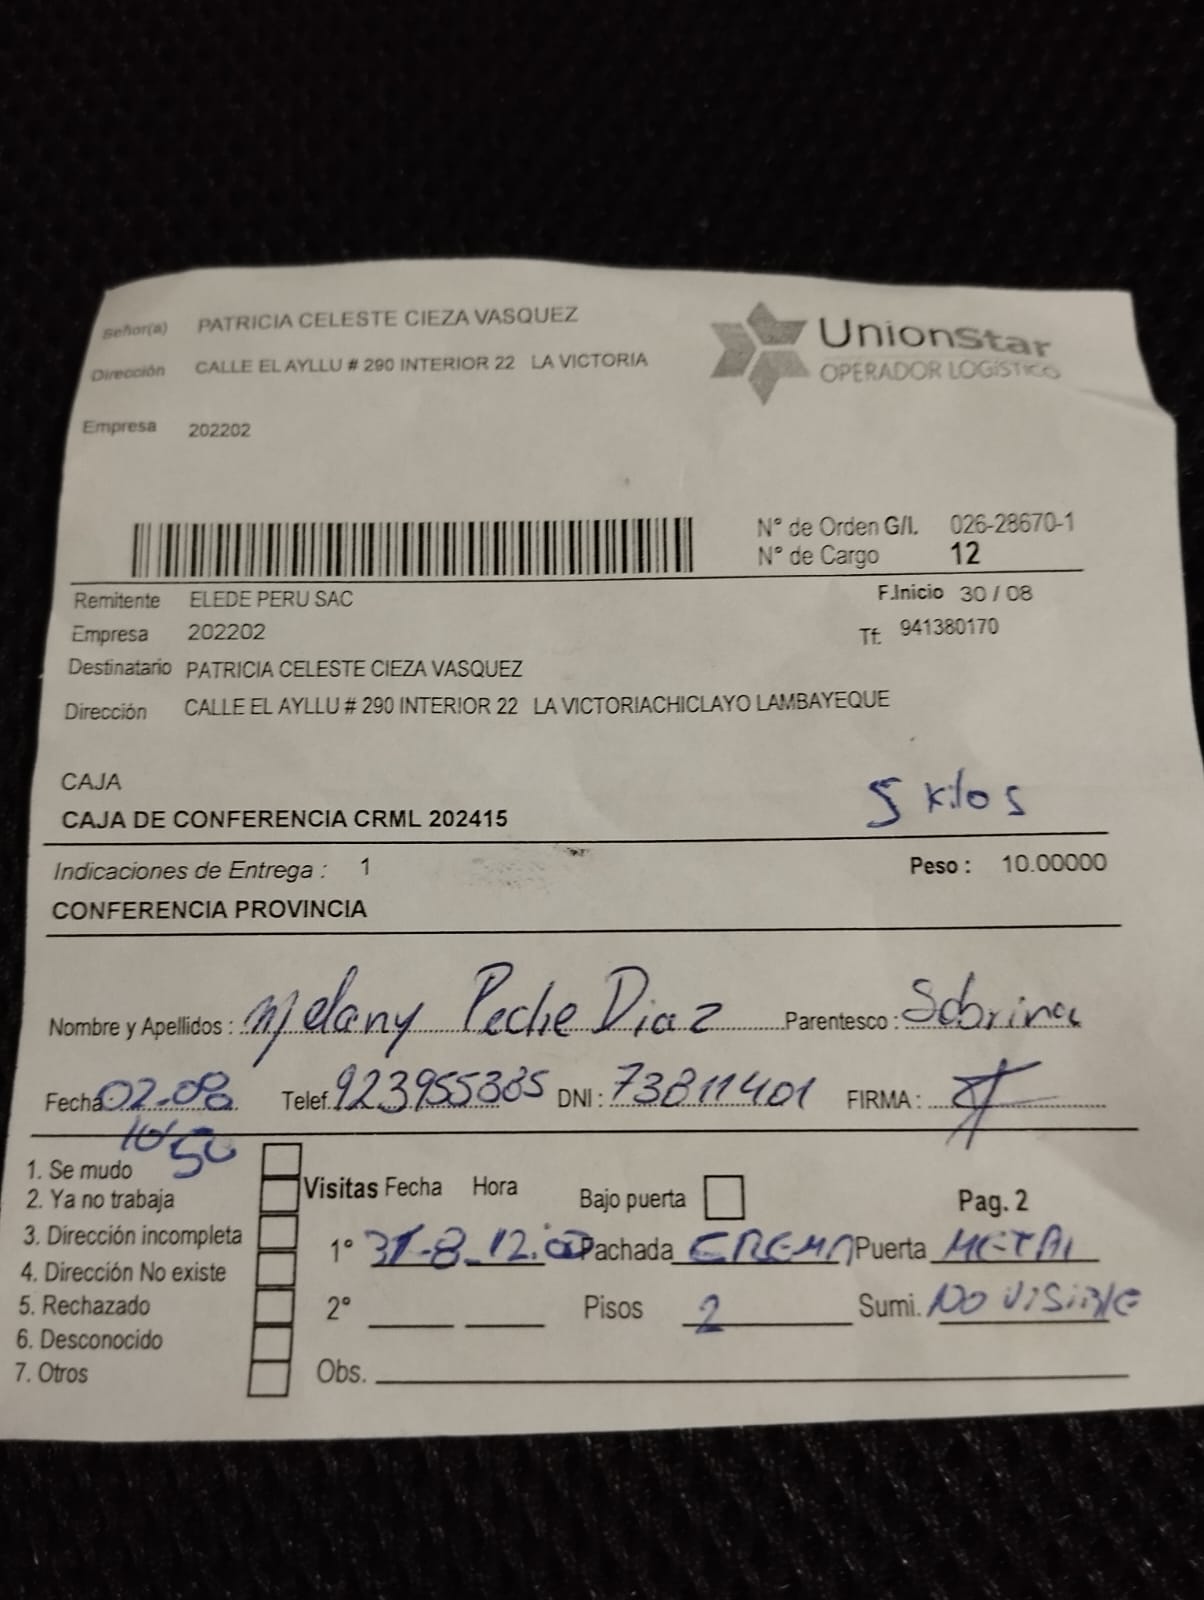 Señor(a) PATRICIA CELESTE CIEZA VASQUEZ
Dirección CALLE EL AYLLU # 290 INTERIOR 22 LA VICTORIA
UnionStar
OPERADOR LOGÍSTICO
Empresa 202202
N° de Orden G/I. 026-28670-1
N° de Cargo 12
Remitente ELEDE PERU SAC F.Inicio 30 / 08
Empresa 202202 Tf. 941380170
Destinatario PATRICIA CELESTE CIEZA VASQUEZ
Dirección CALLE EL AYLLU # 290 INTERIOR 22 LA VICTORIACHICLAYO LAMBAYEQUE
CAJA
5 kilos
CAJA DE CONFERENCIA CRML 202415
Indicaciones de Entrega : 1 Peso : 10.00000
CONFERENCIA PROVINCIA
Nombre y Apellidos : Melany Peche Diaz Parentesco : Sobrina
Fecha 02-08 Telef. 923955385 DNI : 73811401 FIRMA :
10:50
1. Se mudo
2. Ya no trabaja
3. Dirección incompleta
4. Dirección No existe
5. Rechazado
6. Desconocido
7. Otros
Visitas Fecha Hora Bajo puerta Pag. 2
1° 31-8 12: Fachada CREMA Puerta METAL
2° Pisos 2 Sumi. NO VISIBLE
Obs.